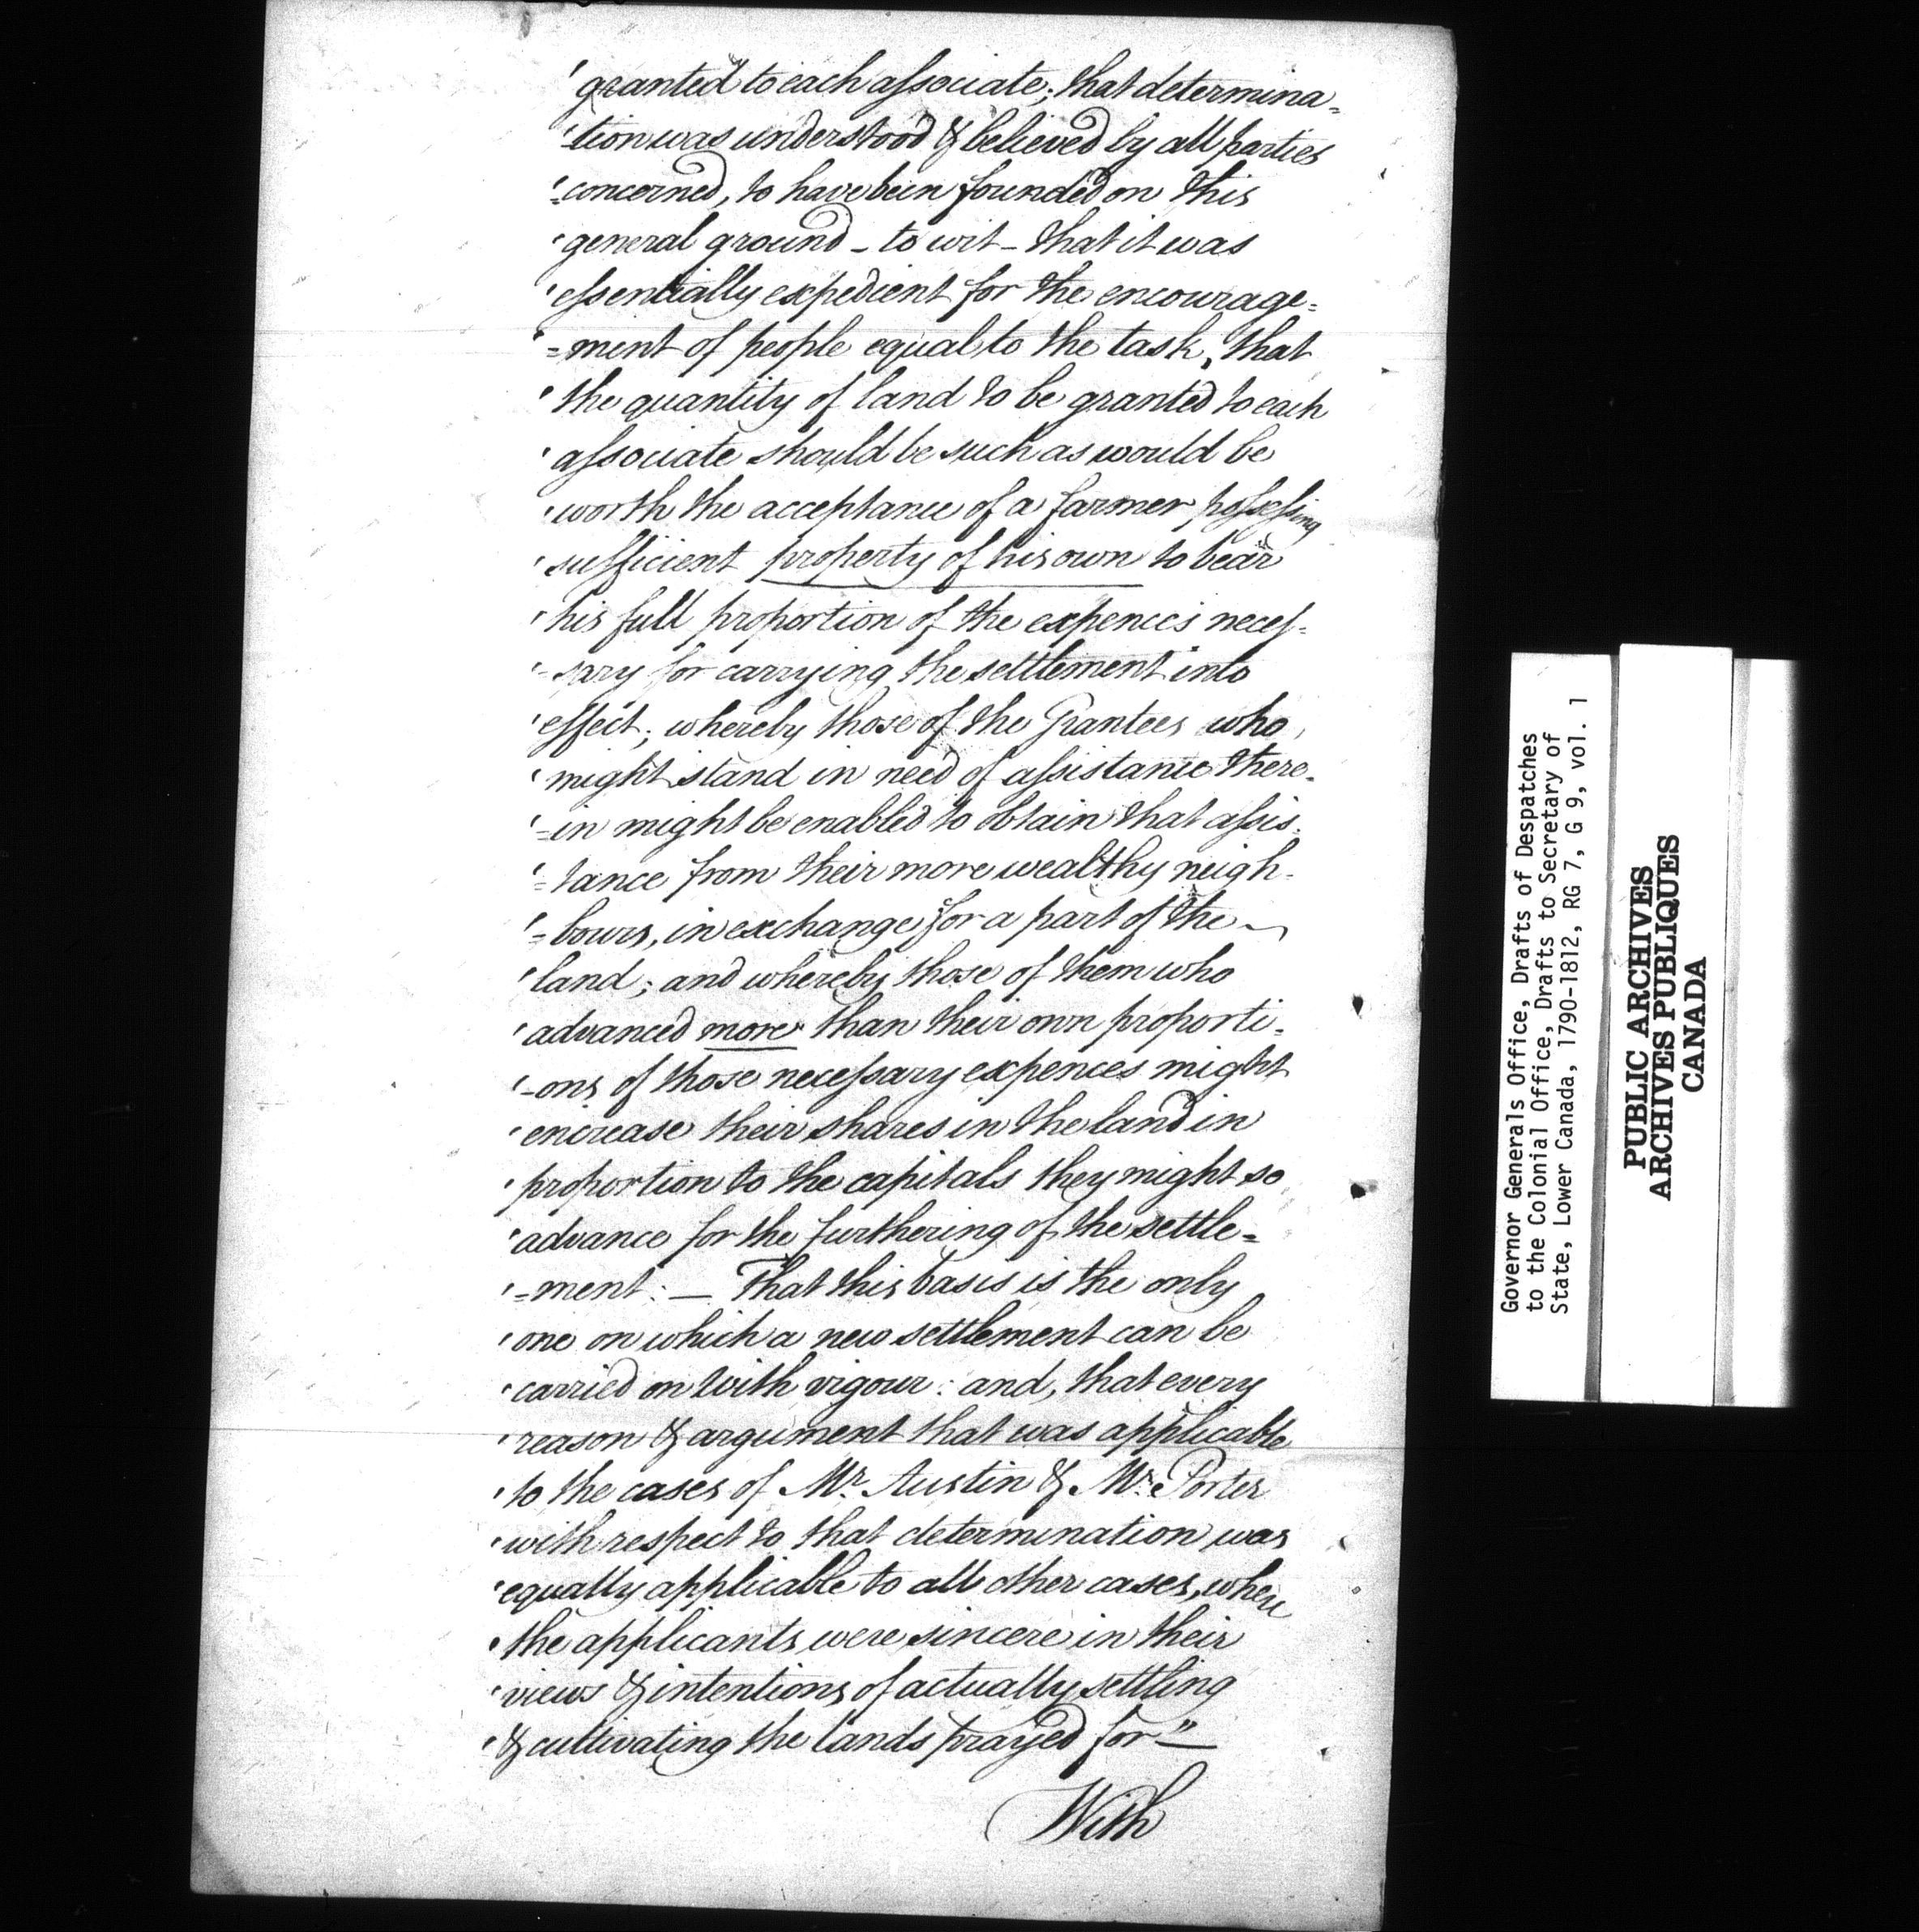 'granted to each associate; that determina=
'=tion was understood & believed by all parties
'concerned, to have been founded on this
'general ground – to wit – that it was
'essentially expedient for the encourage=
'=ment of people equal to the task, that
'the quantity of land to be granted to each
'associate should be such as would be
'worth the acceptance of a farmer possessing
'sufficient property of his own to bear
'his full proportion of the expences neces=
'=sary for carrying the settlement into
'effect; whereby those of the Grantees who
'might stand in need of assistance there-
'-in might be enabled to obtain that assis-
'=tance from their more wealthy neigh-
'=bours, in exchange for a part of the
'land; and whereby those of them who
'advanced more than their own proporti-
'-ons of those necessary expences might
'encrease their shares in the land in
'proportion to the capitals they might so
'advance for the furthering of the settle=
'=ment: — That this basis is the only
'one on which a new settlement can be
'carried on with vigour: and, that every
'reason & argument that was applicable
'to the cases of Mr. Austin & Mr. Porter
'with respect to that determination was
'equally applicable to all other cases, where
'the applicants were sincere in their
'views & intentions of actually settling
'& cultivating the lands prayed for" —
With
Governor Generals Office, Drafts of Despatches
to the Colonial Office, Drafts to Secretary of
State, Lower Canada, 1790-1812, RG 7, G 9, vol. 1
PUBLIC ARCHIVES
ARCHIVES PUBLIQUES
CANADA